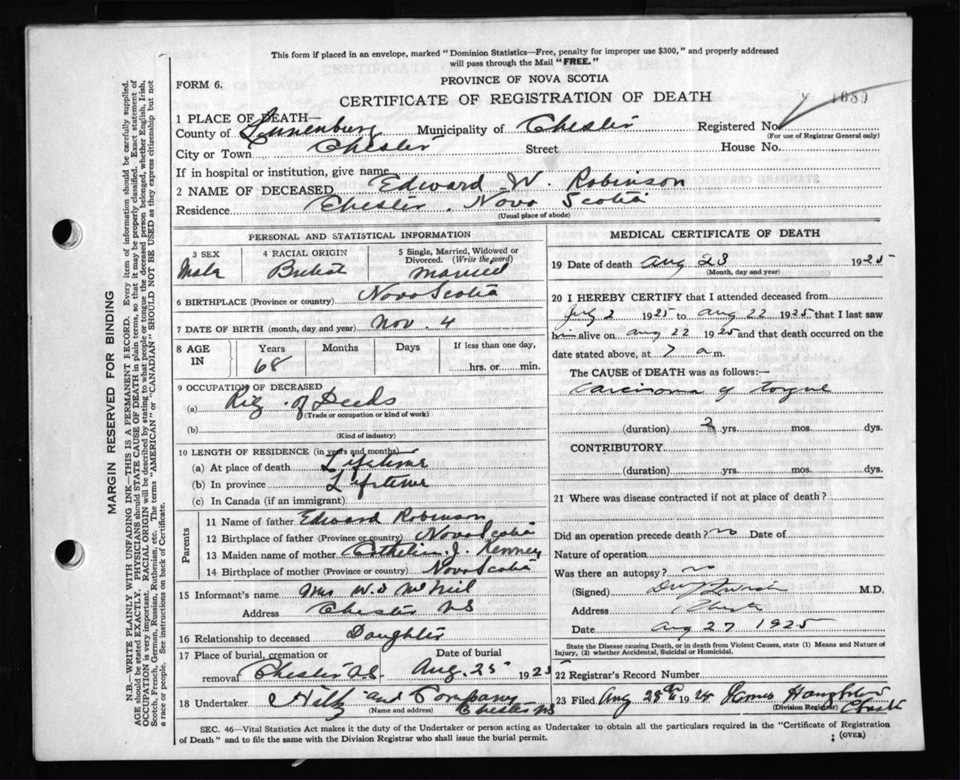 This form if placed in an envelope, marked "Dominion Statistics—Free, penalty for improper use $300," and properly addressed
will pass through the Mail "FREE."
FORM 6.
PROVINCE OF NOVA SCOTIA
CERTIFICATE OF REGISTRATION OF DEATH
1 PLACE OF DEATH—
County of Lunenburg Municipality of Chester Registered No.
(For use of Registrar General only)
City or Town Chester Street House No.
If in hospital or institution, give name
2 NAME OF DECEASED Edward W. Robinson
Residence Chester, Nova Scotia
(Usual place of abode)
PERSONAL AND STATISTICAL INFORMATION
3 SEX Male
4 RACIAL ORIGIN
5 Single, Married, Widowed or Divorced. (Write the word) married
6 BIRTHPLACE (Province or country) Nova Scotia
7 DATE OF BIRTH (month, day and year) Nov. 4
8 AGE IN Years 68 Months Days If less than one day, hrs. or min.
9 OCCUPATION OF DECEASED
(a) Reg. of Deeds
(Trade or occupation or kind of work)
(b)
(Kind of industry)
10 LENGTH OF RESIDENCE (in years and months)
(a) At place of death Lifetime
(b) In province Lifetime
(c) In Canada (if an immigrant)
Parents
11 Name of father Edward Robinson
12 Birthplace of father (Province or country) Nova Scotia
13 Maiden name of mother J.
14 Birthplace of mother (Province or country) Nova Scotia
15 Informant's name Mrs W. McNeil
Address Chester NS
16 Relationship to deceased Daughter
17 Place of burial, cremation or removal Chester NS Date of burial Aug. 25 1925
18 Undertaker Hiltz and Company
(Name and address) Chester NS
MEDICAL CERTIFICATE OF DEATH
19 Date of death Aug 23 1925
(Month, day and year)
20 I HEREBY CERTIFY that I attended deceased from
July 2 1925 to Aug 22 1925 that I last saw
him alive on Aug 22 1925 and that death occurred on
date stated above, at 7 a m.
The CAUSE of DEATH was as follows:—
Carcinoma of tongue
(duration) 2 yrs. mos. dys.
CONTRIBUTORY
(duration) yrs. mos. dys.
21 Where was disease contracted if not at place of death?
Did an operation precede death? no Date of
Nature of operation
Was there an autopsy? no
(Signed) M.D.
Address Chester
Date Aug 27 1925
State the Disease causing Death, or in death from Violent Causes, state (1) Means and Nature of
Injury, (2) whether Accidental, Suicidal or Homicidal.
22 Registrar's Record Number
23 Filed Aug 28th 1924
(Division Registrar) Chester
SEC. 46—Vital Statistics Act makes it the duty of the Undertaker or person acting as Undertaker to obtain all the particulars required in the "Certificate of Registration
of Death" and to file the same with the Division Registrar who shall issue the burial permit.
(OVER)
MARGIN RESERVED FOR BINDING
N.B.—WRITE PLAINLY WITH UNFADING INK—THIS IS A PERMANENT RECORD. Every item of information should be carefully supplied.
AGE should be stated EXACTLY. PHYSICIANS should STATE CAUSE OF DEATH in plain terms, so that it may be properly classified. Exact statement of
OCCUPATION is very important. RACIAL ORIGIN will be described by stating to what people or tongue the deceased person belonged, whether English, Irish,
Scotch, French, German, Russian, Ruthenian, etc. The terms "AMERICAN" or "CANADIAN" SHOULD NOT BE USED as they express citizenship but not
a race or people. See instructions on back of Certificate.